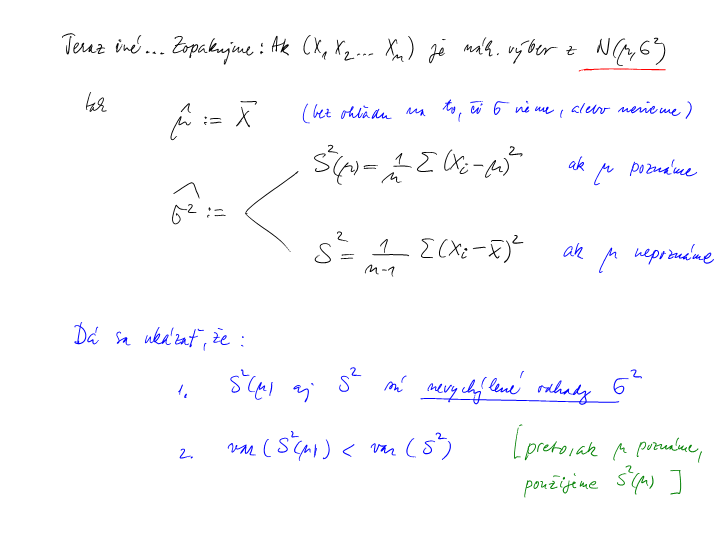 Teraz iné... Zopakujme: Ak (X₁ X₂ ... Xₙ) je náh. výber z N(μ, σ²)
tak
μ̂ := X̄ (bez ohľadu na to, či σ vieme, alebo nevieme)
S²(μ) = 1/n Σ (Xᵢ - μ)² ak μ poznáme
σ̂² :=
S² = 1/(n-1) Σ (Xᵢ - X̄)² ak μ nepoznáme
Dá sa ukázať, že:
1. S²(μ) aj S² sú nevychýlené odhady σ²
2. var (S²(μ)) < var (S²) [preto, ak μ poznáme,
použijeme S²(μ) ]